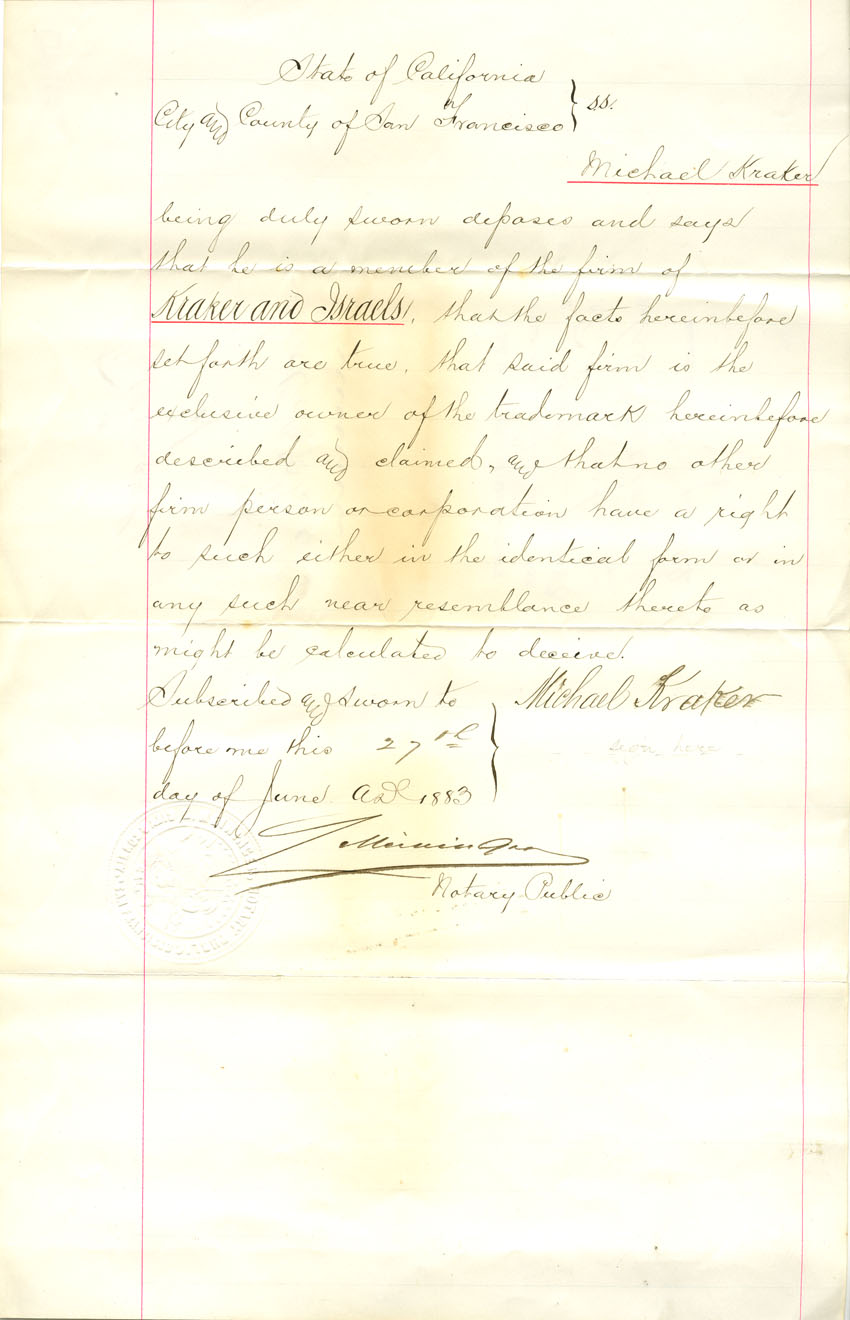 State of California
City and County of San Francisco } ss.
Michael Kraker
being duly sworn deposes and says
that he is a member of the firm of
Kraker and Israels, that the facts hereinbefore
set forth are true, that said firm is the
exclusive owner of the trademark hereinbefore
described and claimed, and that no other
firm person or corporation have a right
to such either in the identical form or in
any such near resemblance thereto as
might be calculated to deceive.
Subscribed and sworn to
before me this 27th
day of June AD 1883
Michael Kraker
sign here
Notary Public